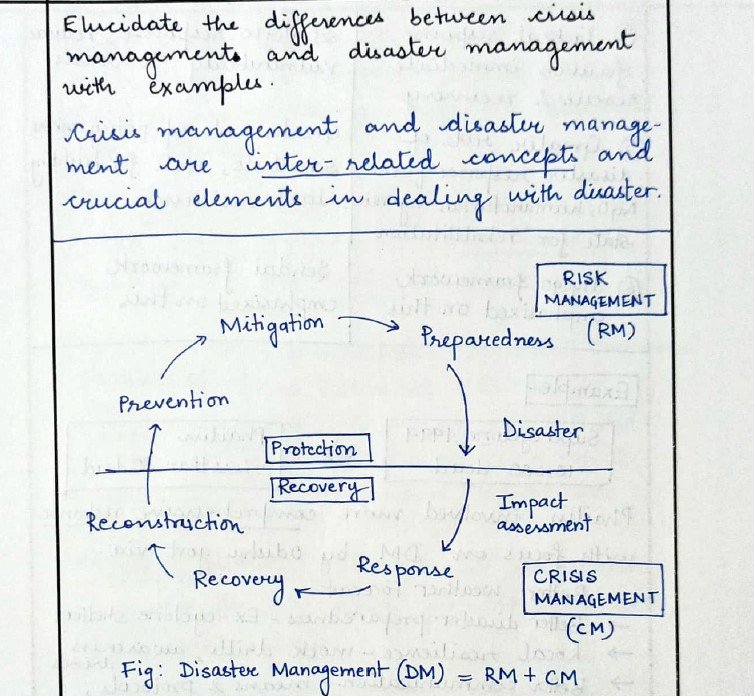 Elucidate the differences between crisis
managements and disaster management
with examples.
Crisis management and disaster manage-
ment are inter-related concepts and
crucial elements in dealing with disaster.
RISK
MANAGEMENT
(RM)
Mitigation
Preparedness
Prevention
Disaster
Protection
Recovery
Impact
assessment
Reconstruction
Response
Recovery
CRISIS
MANAGEMENT
(CM)
Fig: Disaster Management (DM) = RM + CM